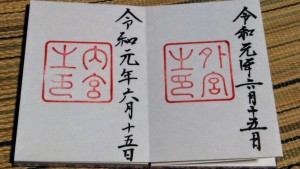 令和元年六月十五日
外宮
之印
令和元年六月十五日
内宮
之印